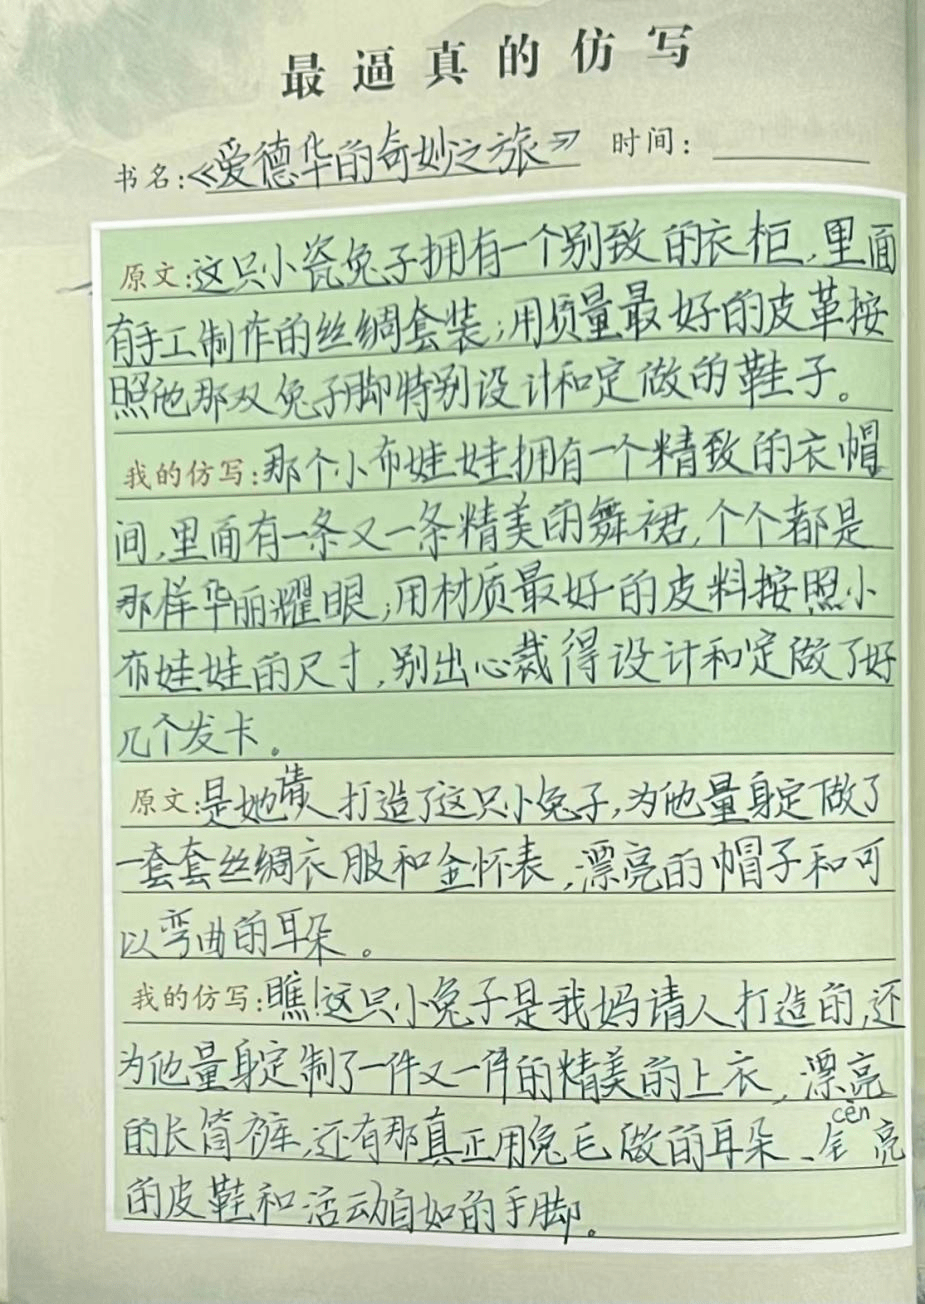 最逼真的仿写
书名:《爱德华的奇妙之旅》 时间:
原文:这只小瓷兔子拥有一个别致的衣柜,里面
有手工制作的丝绸套装;用质量最好的皮革按
照他那双兔子脚特别设计和定做的鞋子。
我的仿写:那个小布娃娃拥有一个精致的衣帽
间,里面有一条又一条精美的舞裙,个个都是
那样华丽耀眼;用材质最好的皮料按照小
布娃娃的尺寸,别出心裁得设计和定做了好
几个发卡。
原文:是她请人打造了这只小兔子,为他量身定做了
一套套丝绸衣服和金怀表,漂亮的帽子和可
以弯曲的耳朵。
我的仿写:瞧!这只小兔子是我妈请人打造的,还
为他量身定制了一件又一件的精美的上衣,漂亮
的长筒裤,还有那真正用兔毛做的耳朵、cèn亮
的皮鞋和活动自如的手脚。